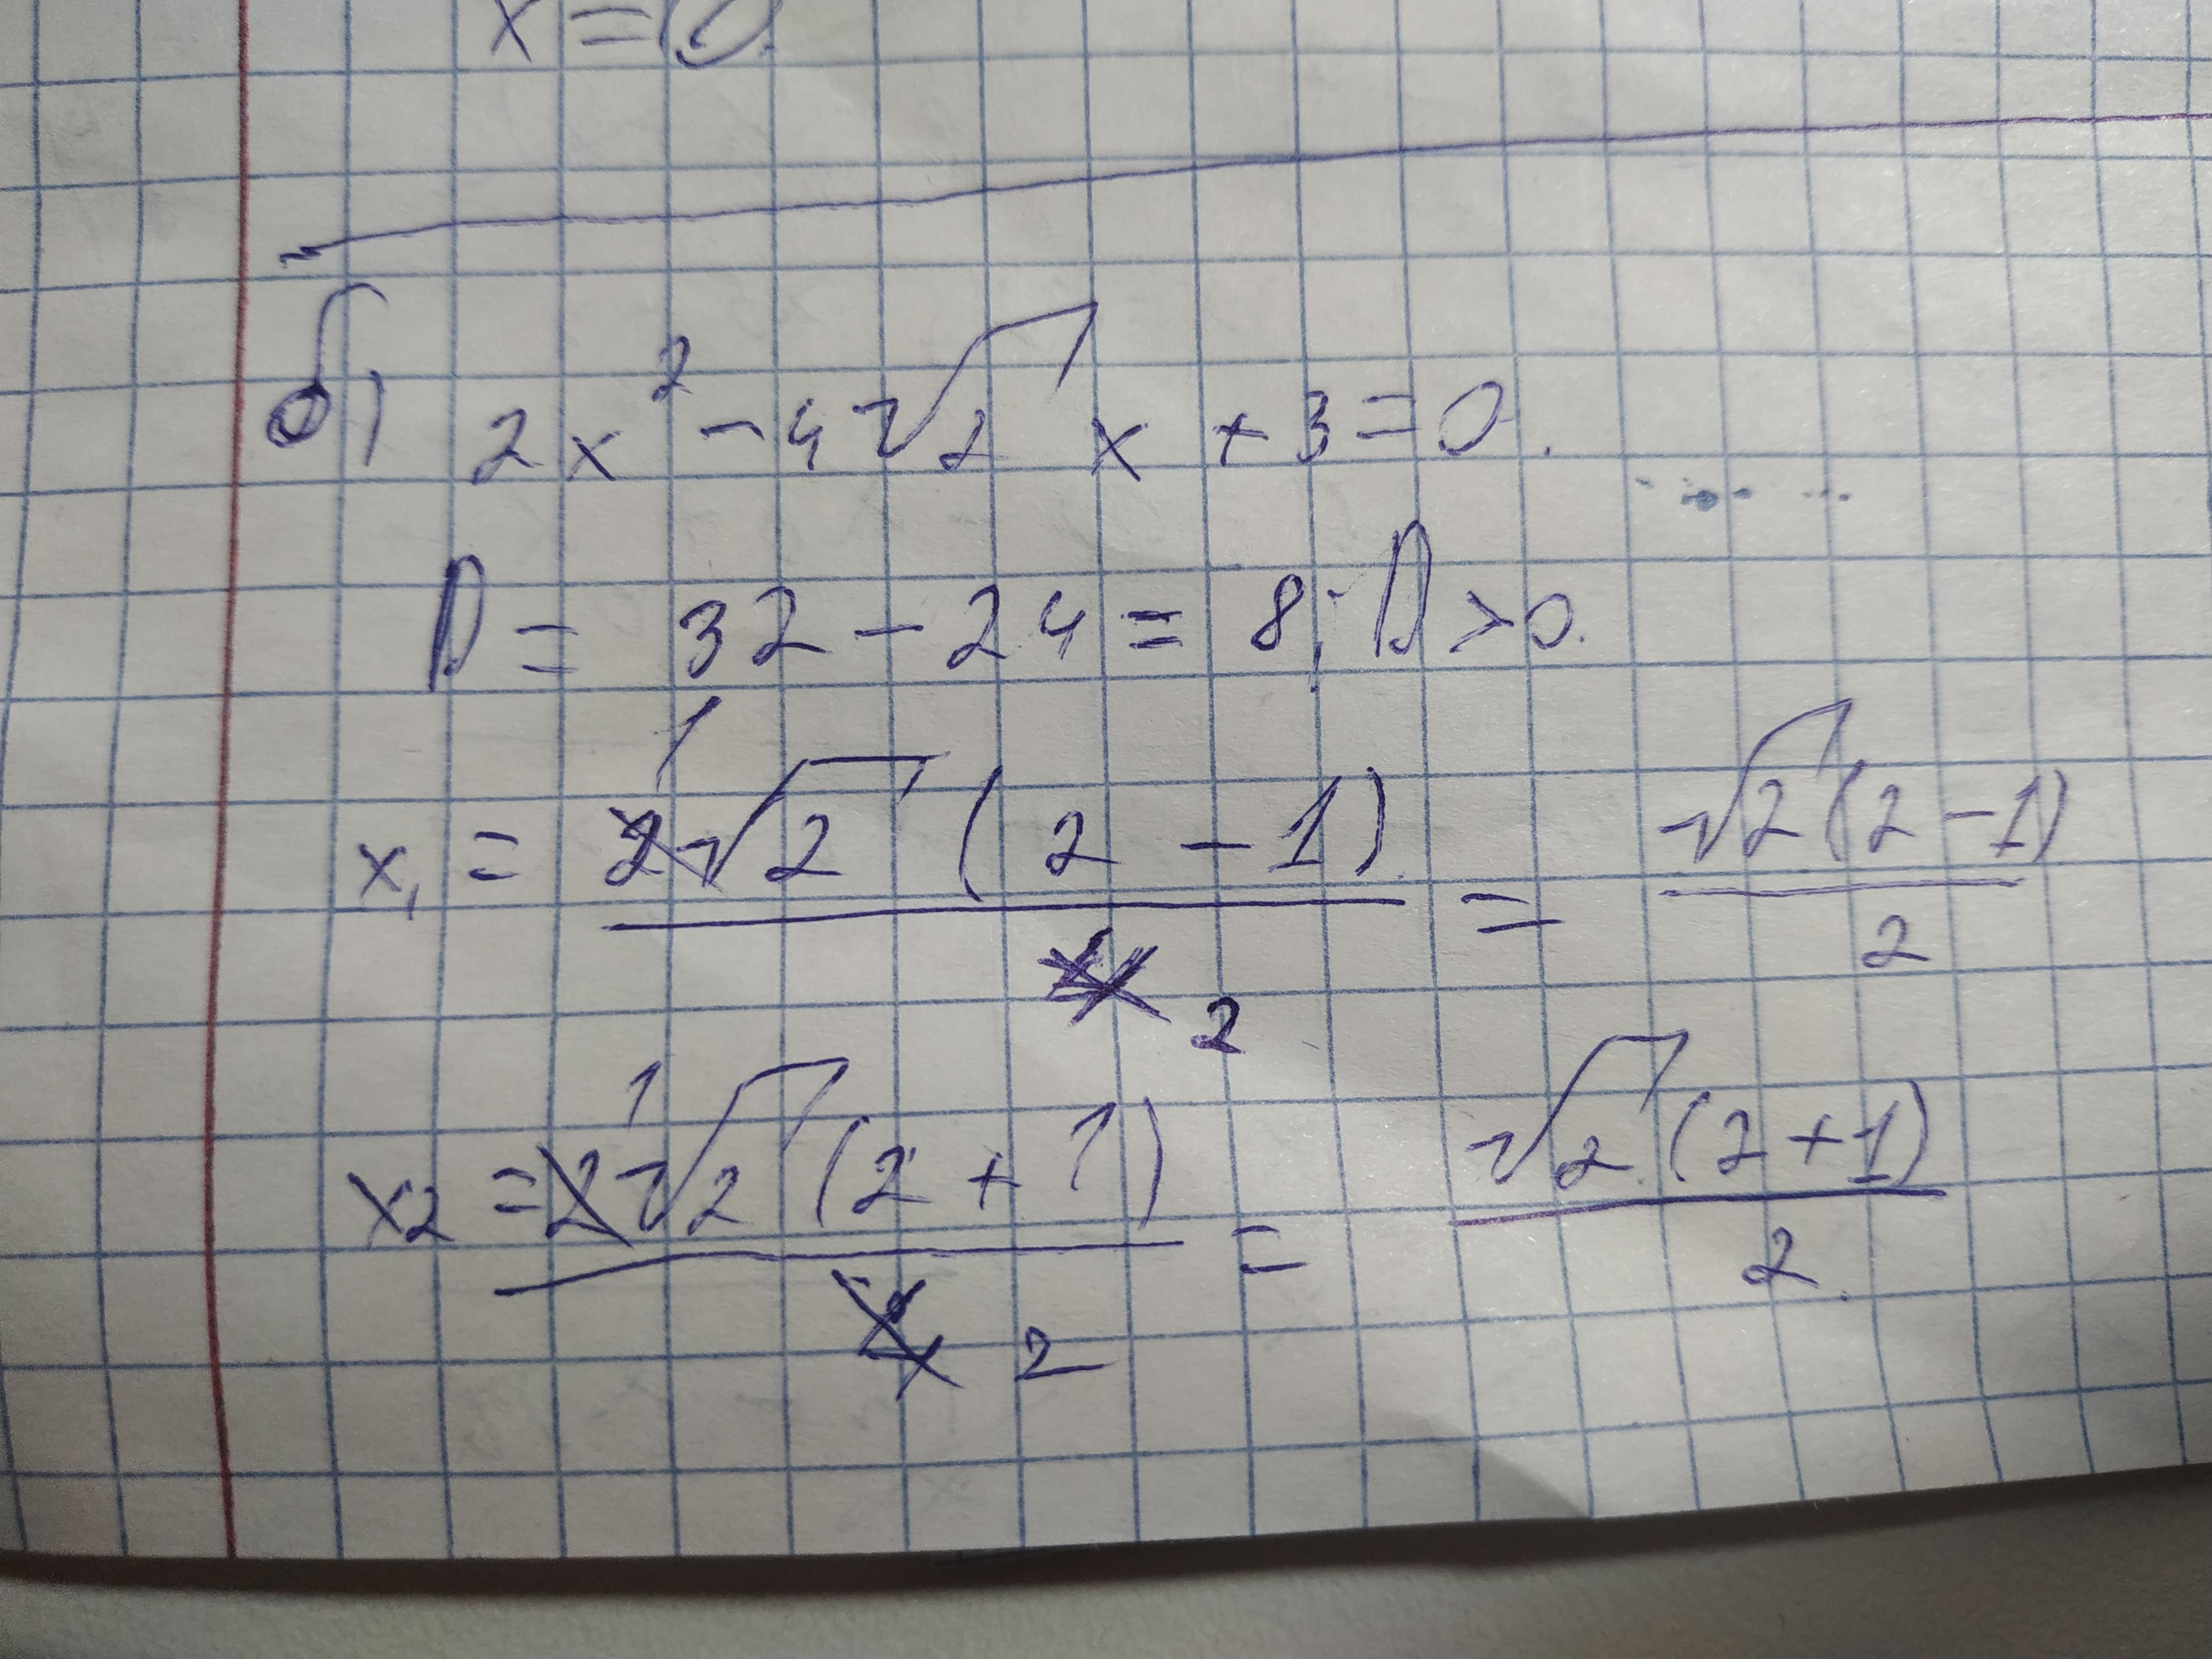 x = 10.
б) 2x² - 4√2 x + 3 = 0.
D = 32 - 24 = 8; D > 0.
x₁ = 2√2 (2 - 1) / 4 = √2 (2 - 1) / 2
x₂ = 2√2 (2 + 1) / 4 = √2 (2 + 1) / 2.